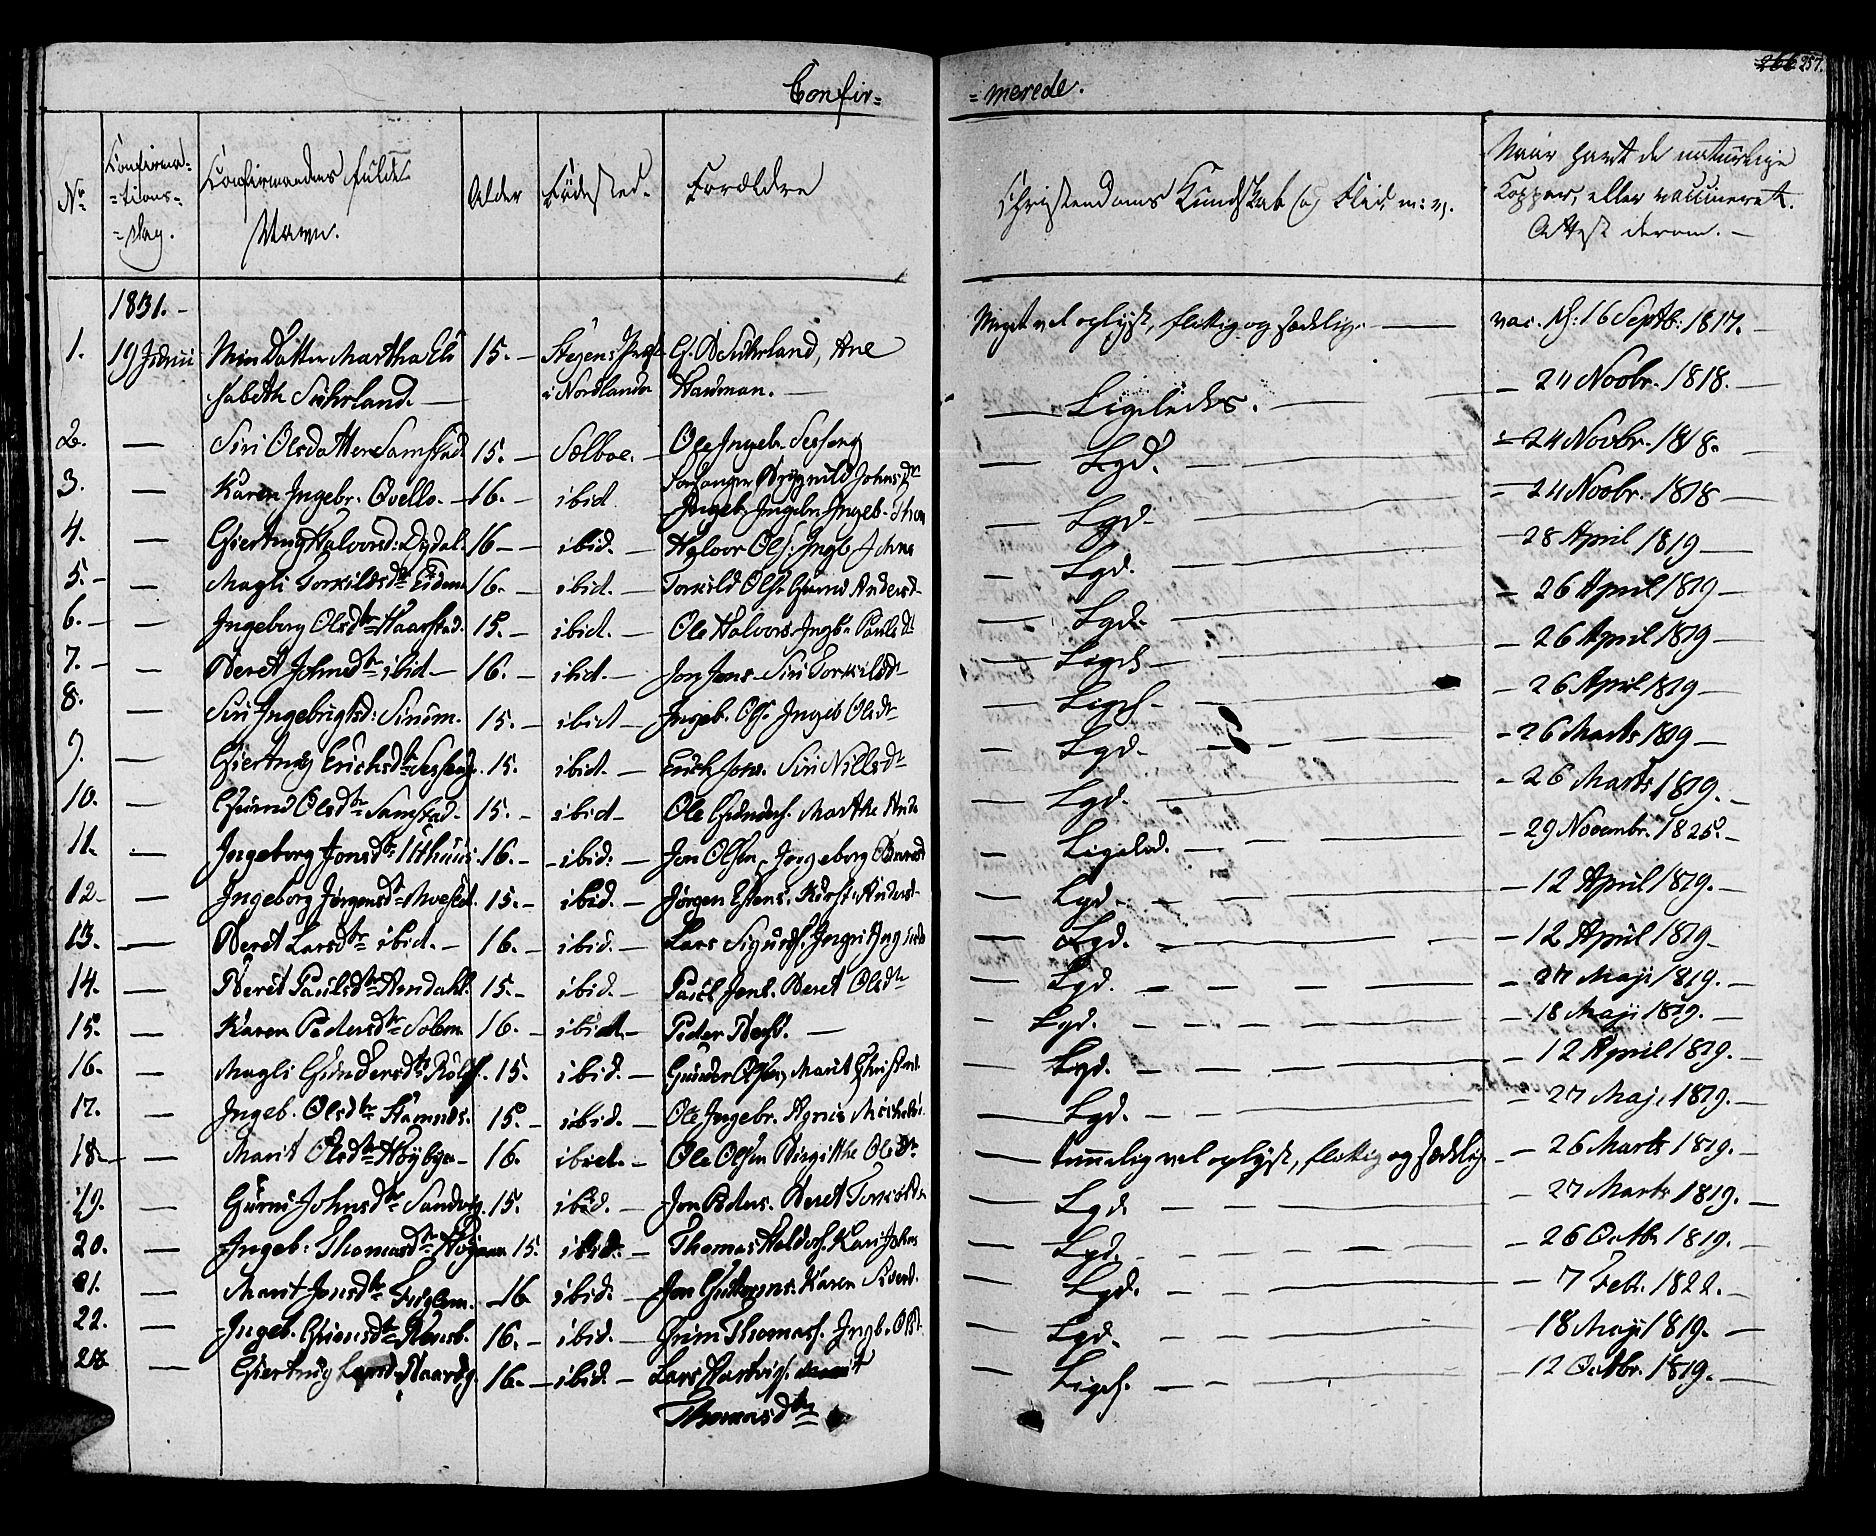 Confir=
=merede.
266 257.
Nr
Confirma=
=tions=
=dag.
Confirmandens fulde
Navn.
Alder
Födested.
Forældre
Christendoms Kundskab og Flid m: v.
Naar havt de naturlige
Kopper, eller vaccineret.
Attest derom. —
1831. —
1. 19 Junii Min Datter Martha Eli 15. — Stegens Præst G. B. Suhrland, Ane Meget vel oplyst, flittig og sædelig. — vac. d: 16 Septb: 1817. —
sabeth Suhrland. — i Nordlandn Hardman. —
2. — Siri Olsdatter Samstad 15. — Sælboe. — Ole Ingebr. Sesseng — Ligeledes. — — 24 Novbr. 1818. —
3. — Karen Ingebr. Qvello. — 16. — ibid Brÿnild Johnsdr — Lgd. — — 24 Novbr. 1818.
4. — Giertrug Halvorsd: Dÿdal. 16 — ibid. — Halvor Ols: Ingb — Lgd. — — 24 Novbr. 1818 —
5. — Magli Torkildsdr Eidem 16. — ibid. — Torkild Ols. Gurrud Andersd — Lgd. — — 28 April 1819 —
6. — Ingeborg Olsdtr Haarstad. 15. — ibid. — Ole Halvors. Ingb. Paulsdr — Lgd. — — 26 April 1819 —
7. — Beret Johnsdtr ibid — 16. — ibid. — Jon Jons. Siri Torkilsdr — Ligel. — — 26 April 1819 —
8. — Siri Ingebrigtsd: 15. — ibid — Ingeb. Ols. Ingeb Olsdr — Ligel. — — 26 April 1819 —
9. — Giertrug Erichsdtr Sesseng. 15. ibid. — Erich Jons. Siri Nillsdr — Lgd. — — 26 Marts 1819 —
10. — Gurrud Olsdtr Samstad. 15. — ibid — Ole Gunders. Marthe — Lgd. — — 26 Marts 1819. —
11. — Ingeborg Jonsdtr Uthuus. 16. — ibid: — Jon Olsen, Ingeborg — Ligeled. — — 29 Novembr. 1825. —
12 — Ingeborg Jørgensdr Moeslet. 15. — ibid. — Jørgen Estens. Kirst. Andersd. — Lgd. — — 12 April 1819. —
13. — Beret Larsdtr ibid. — 16. — ibid. — Lars Sigurds. Ingrit — Lgd. — — 12 April 1819 —
14. — Berit Paulsdtr Aendahl. 15. — ibid. — Paul Jens. Beret Olsdtr — Lgd. — — 27 Maji 1819. —
15. — Karen Pedersdtr Solem 16. — ibid. — Peder — Lgd. — — 18 Maji 1819. —
16. — Magli Gundersdtr Rolse. 15. ibid. — Gunder Olsen, Marit Christens — Lgd. — — 12 April 1819. —
17. — Ingeb. Olsdtr Stamnes. 15. — ibid. — Ole Ingebr. Agnis Michelsd. — Lgd. — — 27 Maji 1819. —
18. — Marit Olsdtr Høÿbÿe — 16. ibid. — Ole Olsen Birgitthe Olsdr — temmelig vel oplyst, flittig og sædelig — — 26 Marts 1819. —
19. — Guru Johnsdtr Sandvig. 15. ibid. — Jon Peders. Beret — Lgd. — — 27 Marts 1819. —
20. — Ingeb: Thomasdtr 15. ibid. — Thomas Haldors. Kari Johns — Lgd. — — 26 Octbr 1819. —
21. — Marit Jonsdtr Fuglem. 16 ibid. — Jon Guttorms. Karen — Lgd. — — 7 Febr. 1822. —
22. — Ingeb. Grimsdtr 16. — ibid. — Grim Thomas. Ingb. Olsd. — Lgd. — — 18 Maji 1819. —
23 — Giertrug Larsd. 16. — ibid. — Lars Hartvigs. Marit — Ligel. — — 12 Octbr. 1819. —
Thomasdtr